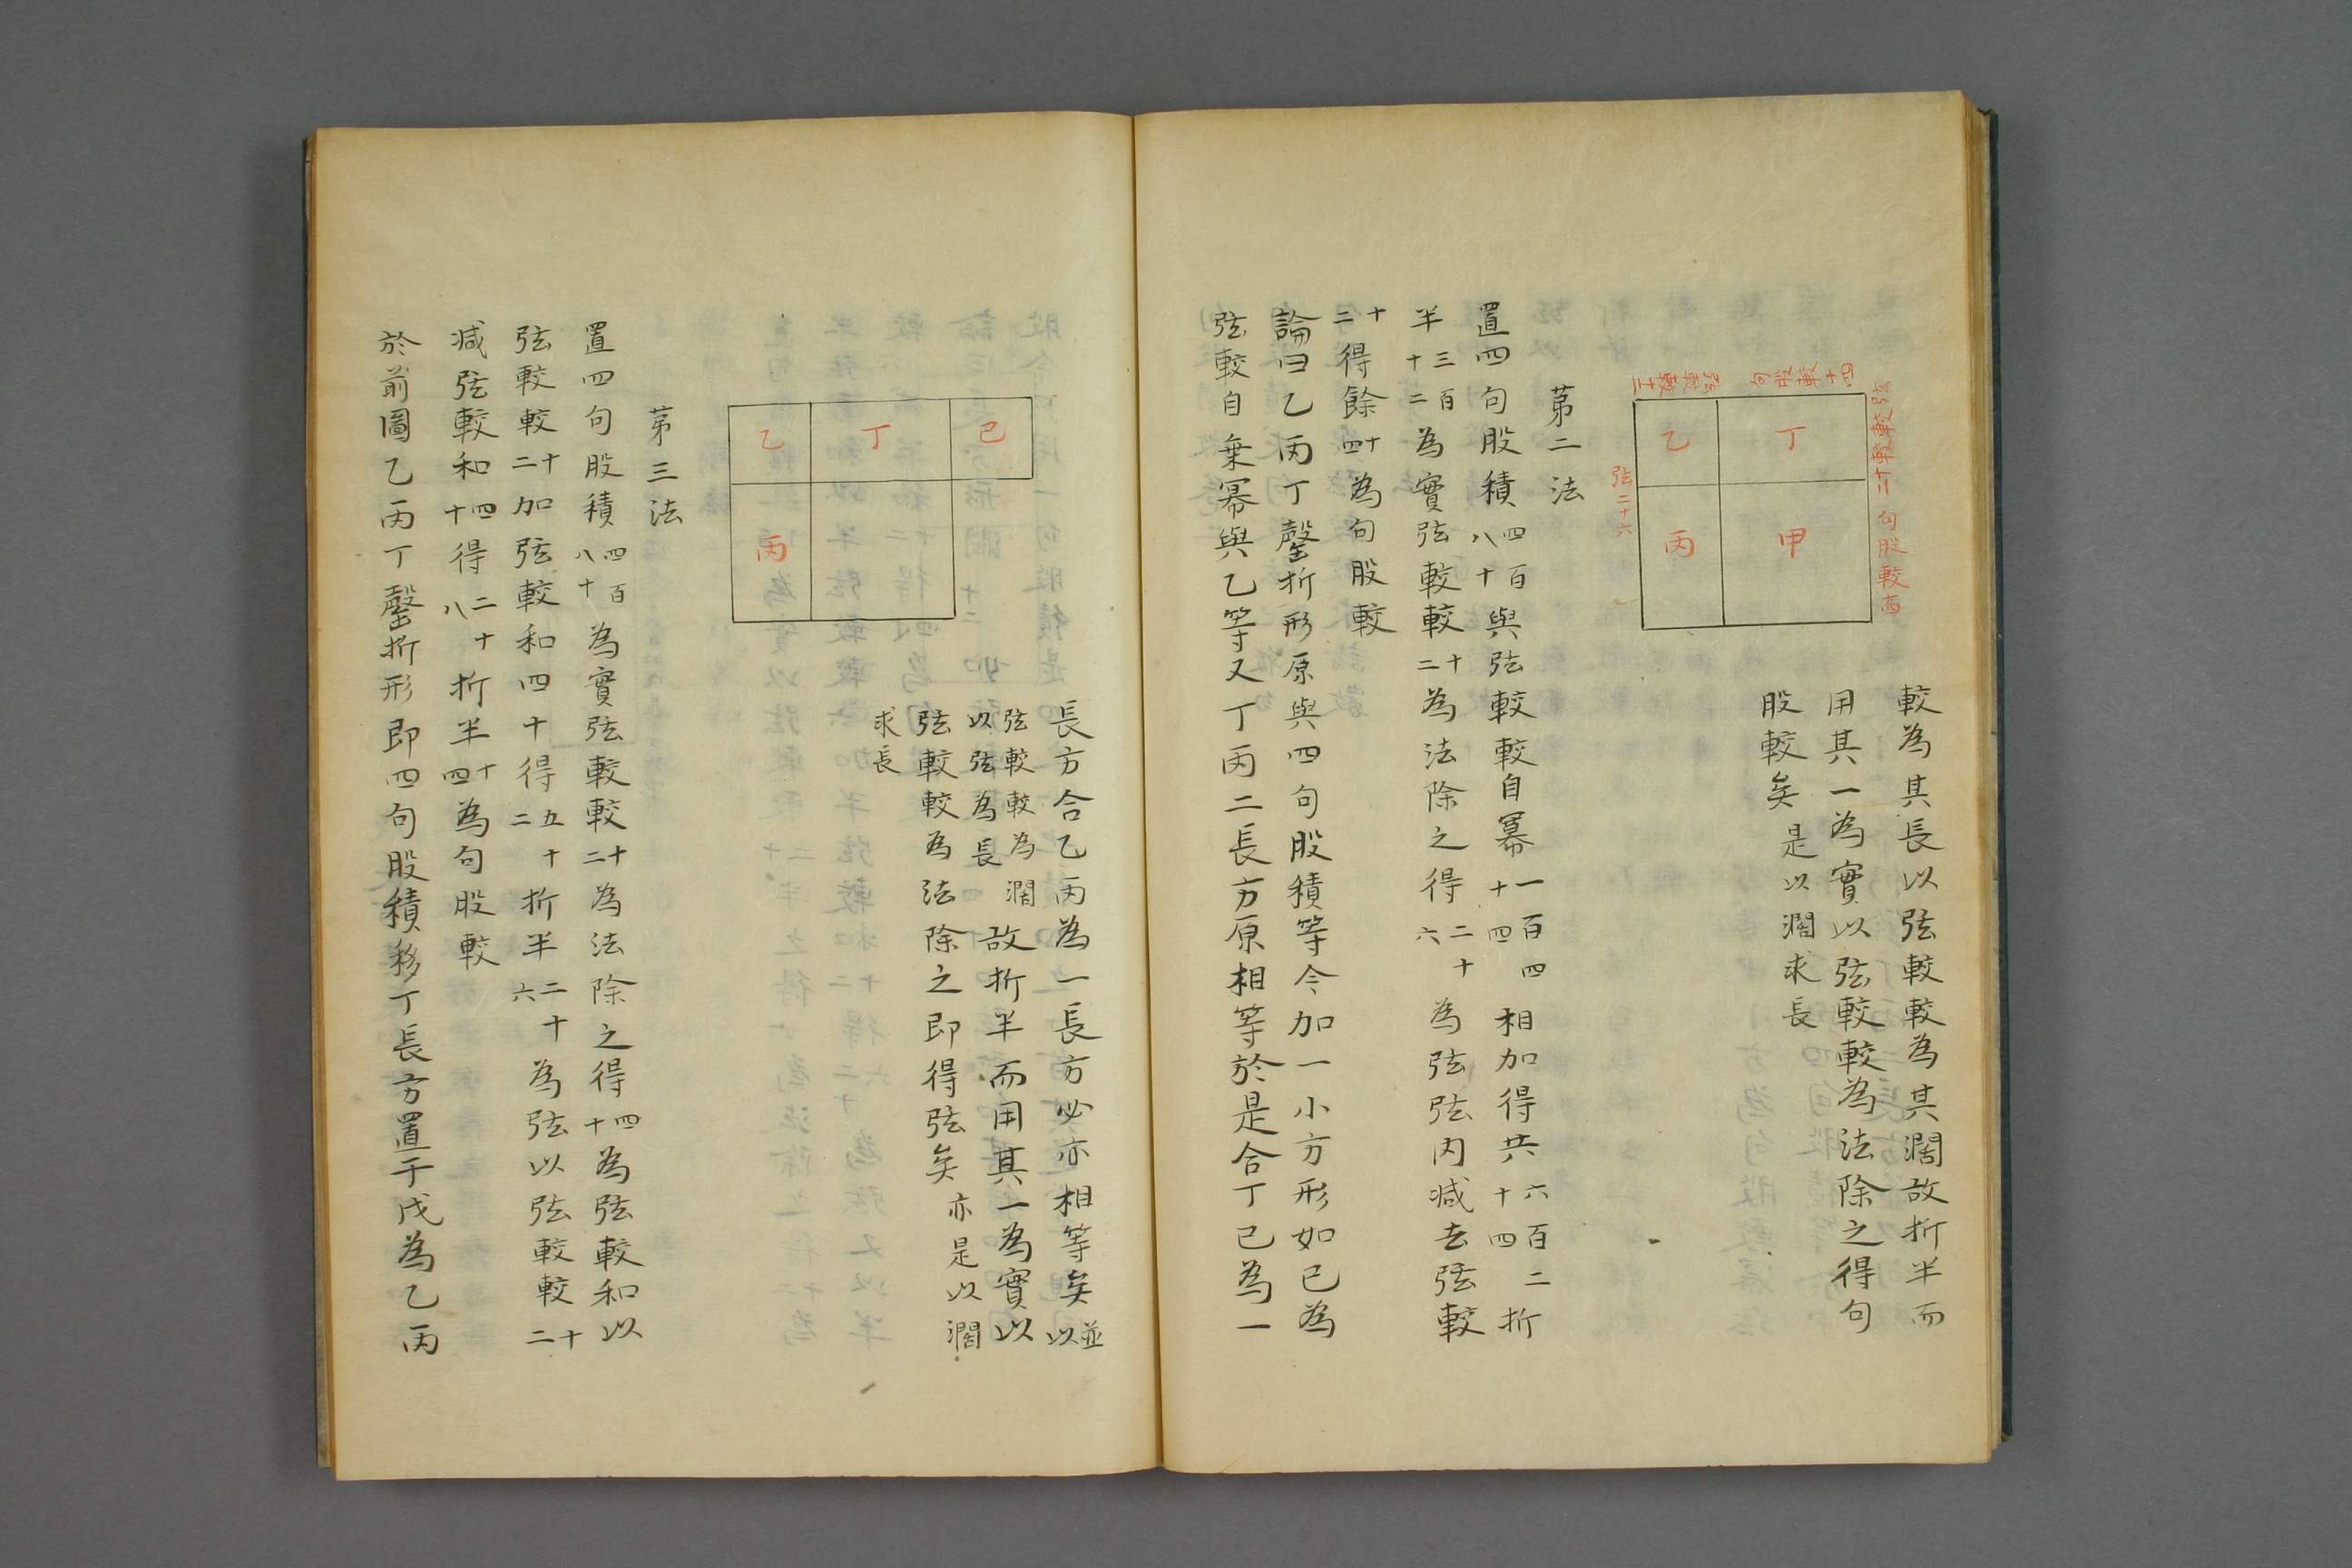 較為其長以弦較較為其濶故折半而
用其一為實以弦較較為法除之得句
股較矣是以濶求長
弦較較十二
句股較十四
弦較較十二
句股較
弦二十六
乙
丁
丙
甲
第二法
置四句股積四百八十與弦較較自冪一百四十四相加得共六百二十四折
半三百十二為實弦較較十二為法除之得二十六為弦弦內減去弦較
較十二得餘十四為句股較
論曰乙丙丁罄折形原與四句股積等令加一小方形如已為
弦較自乗冪與乙等又丁丙二長方原相等於是合丁己為一
長方合乙丙為一長方必亦相等矣並以
弦較較為濶以弦為長故折半而用其一為實以
弦較較為法除之即得弦矣亦是以濶
求長
乙
丁
已
丙
第三法
置四句股積四百八十為實弦較較十二為法除之得四十為弦較和以
弦較較十二加弦較和四十得五十二折半二十六為弦以弦較較十二
減弦較和四十得二十八折半十四為句股較
於前圖乙丙丁罄折形即四句股積移丁長方置于戊為乙丙